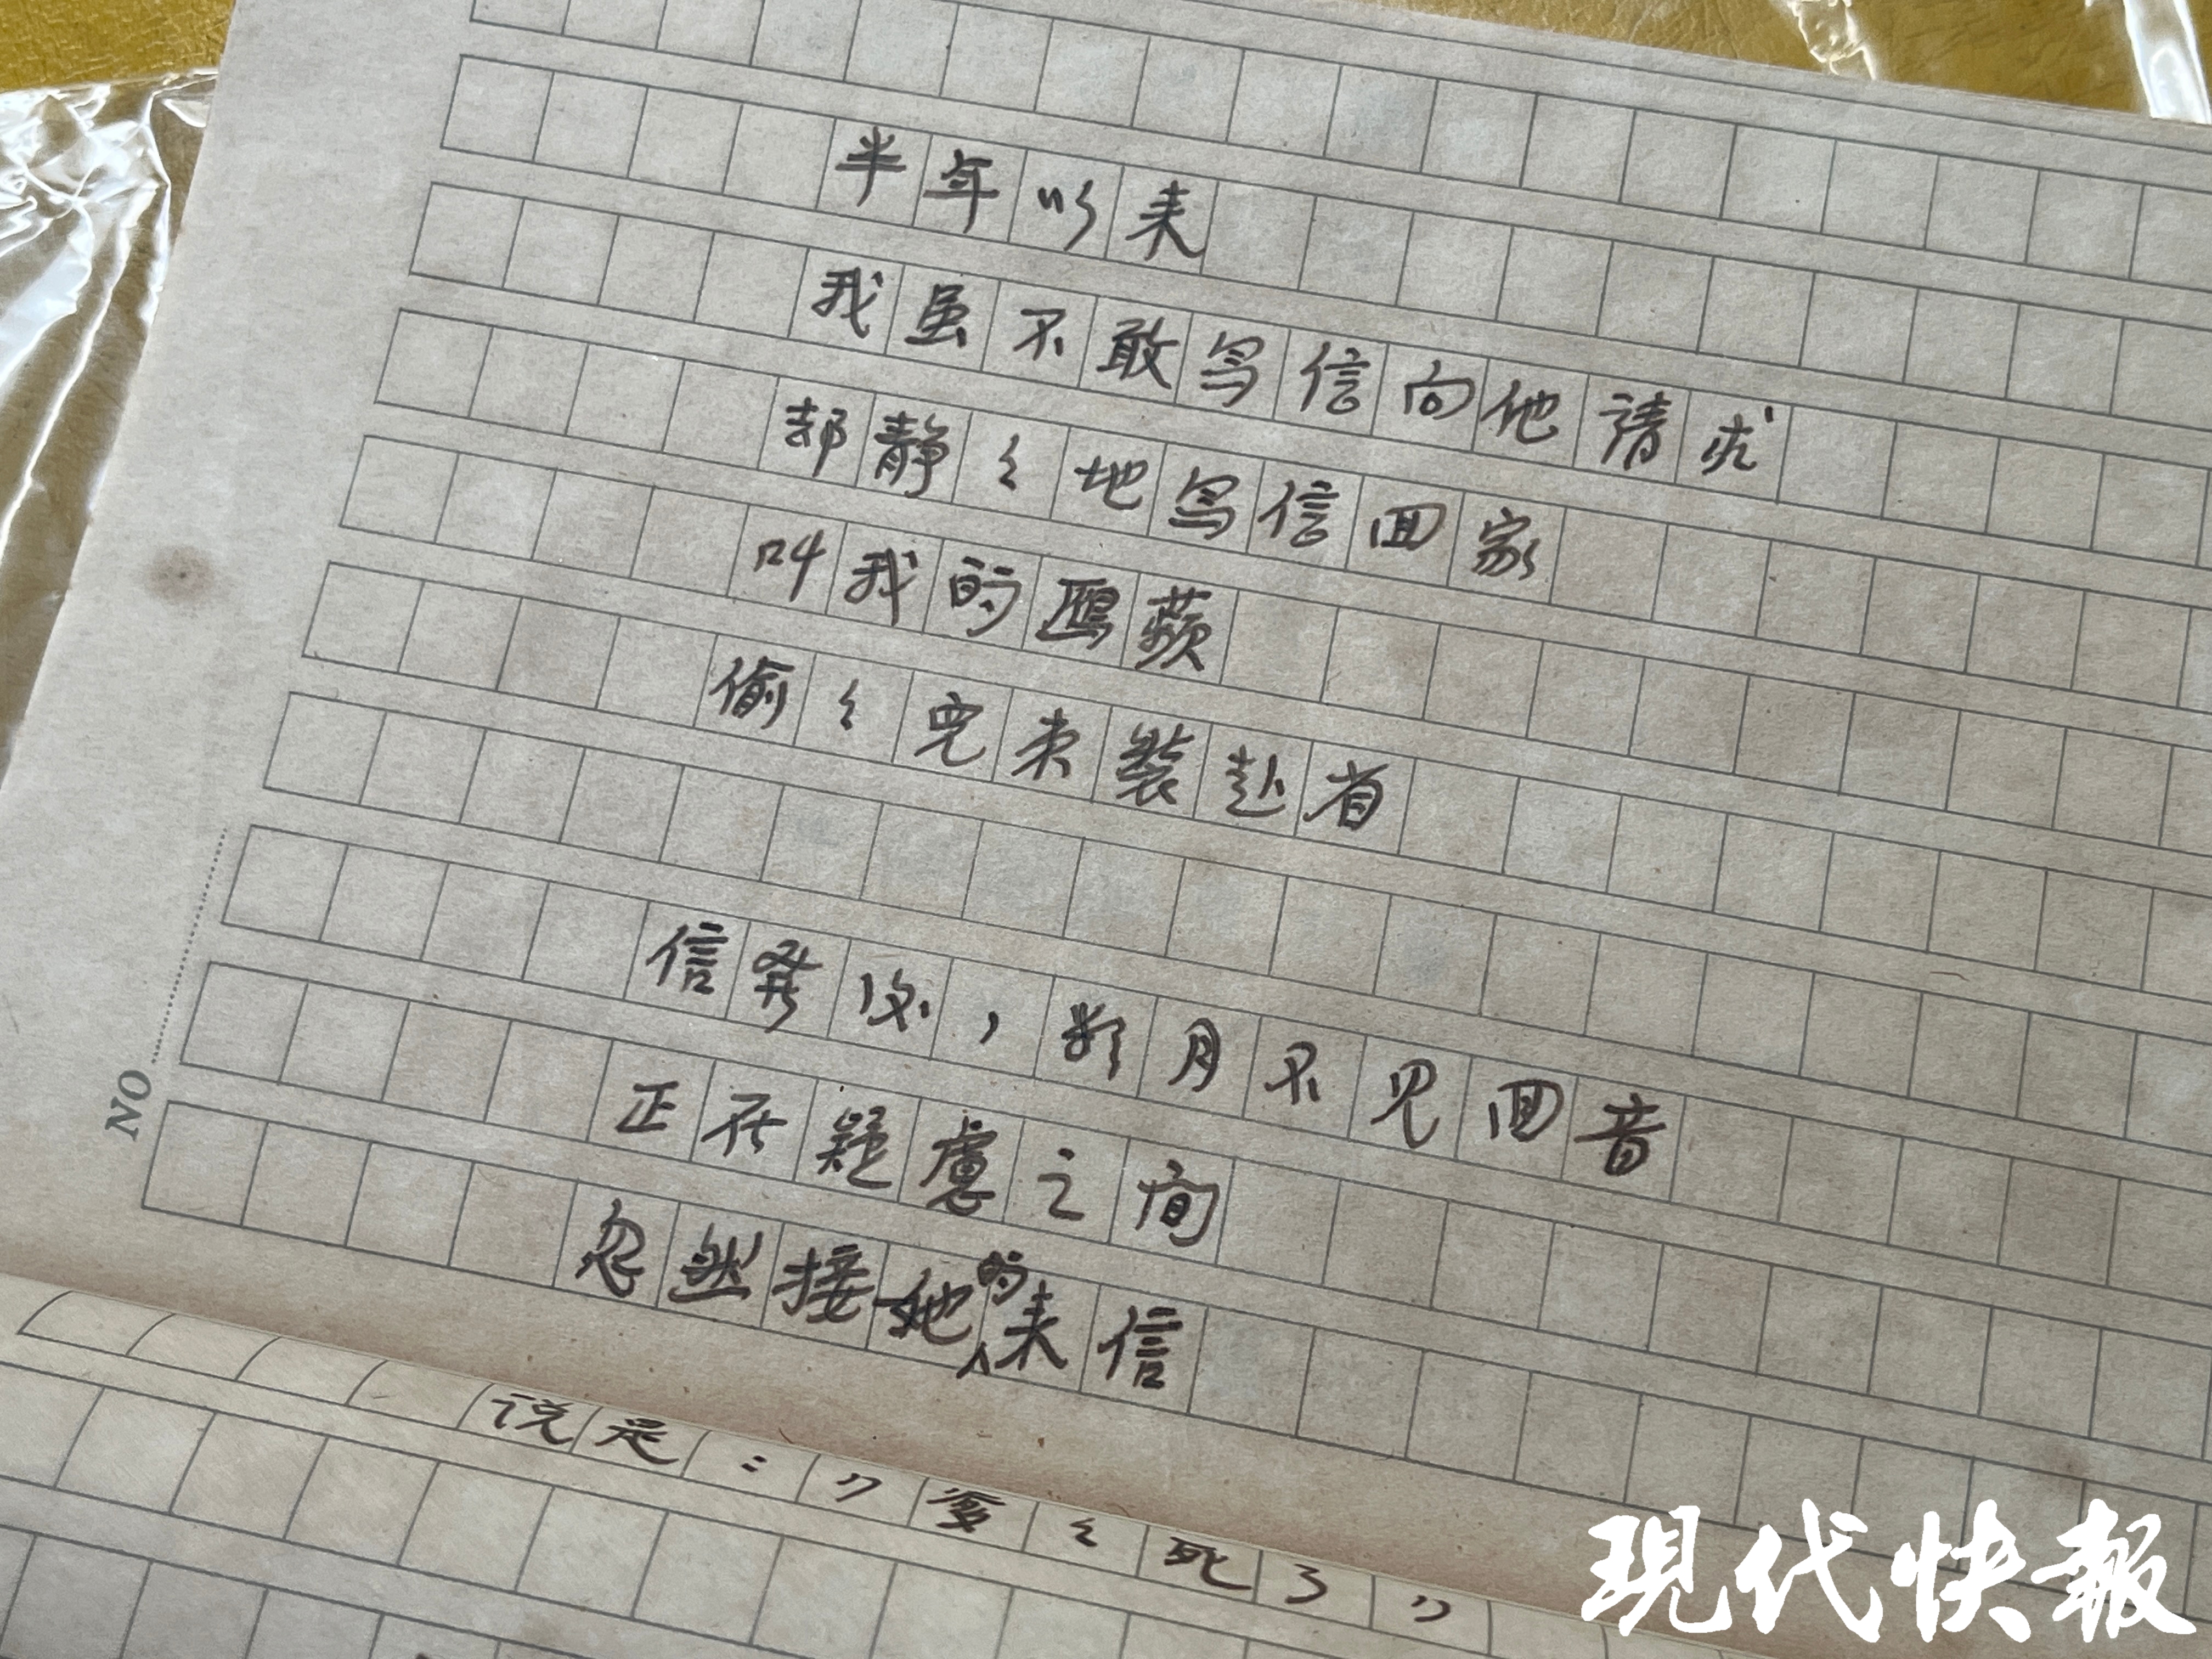 半年以来
我虽不敢写信向他请求
却静々地写信回家
叫我的鷗蘋
偷々完束装赴省
信发后，数月不见回音
正在疑慮之间
忽然接她的来信
说是："爱々死了"
NO
現代快報